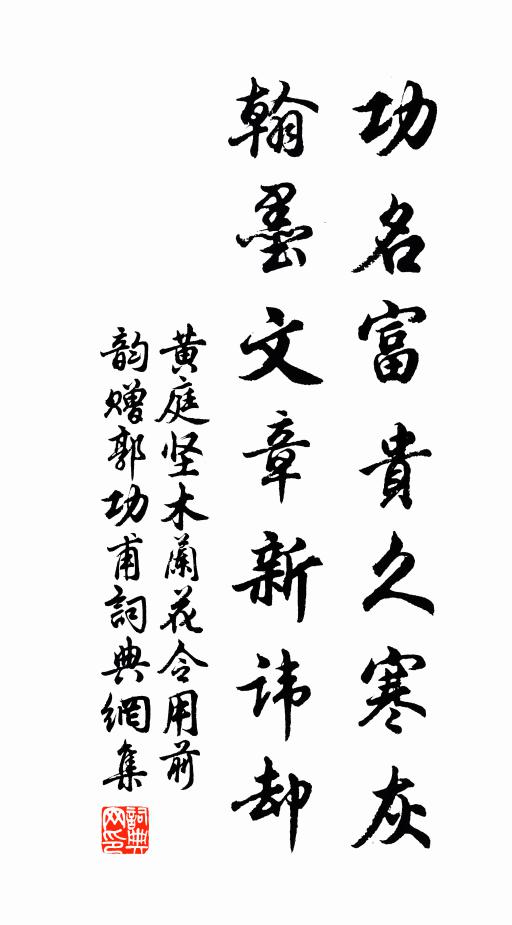 功名富貴久寒灰
翰墨文章新讳却
黄庭坚木蘭花令用前
韵赠郭功甫詞典網集
詞典网印